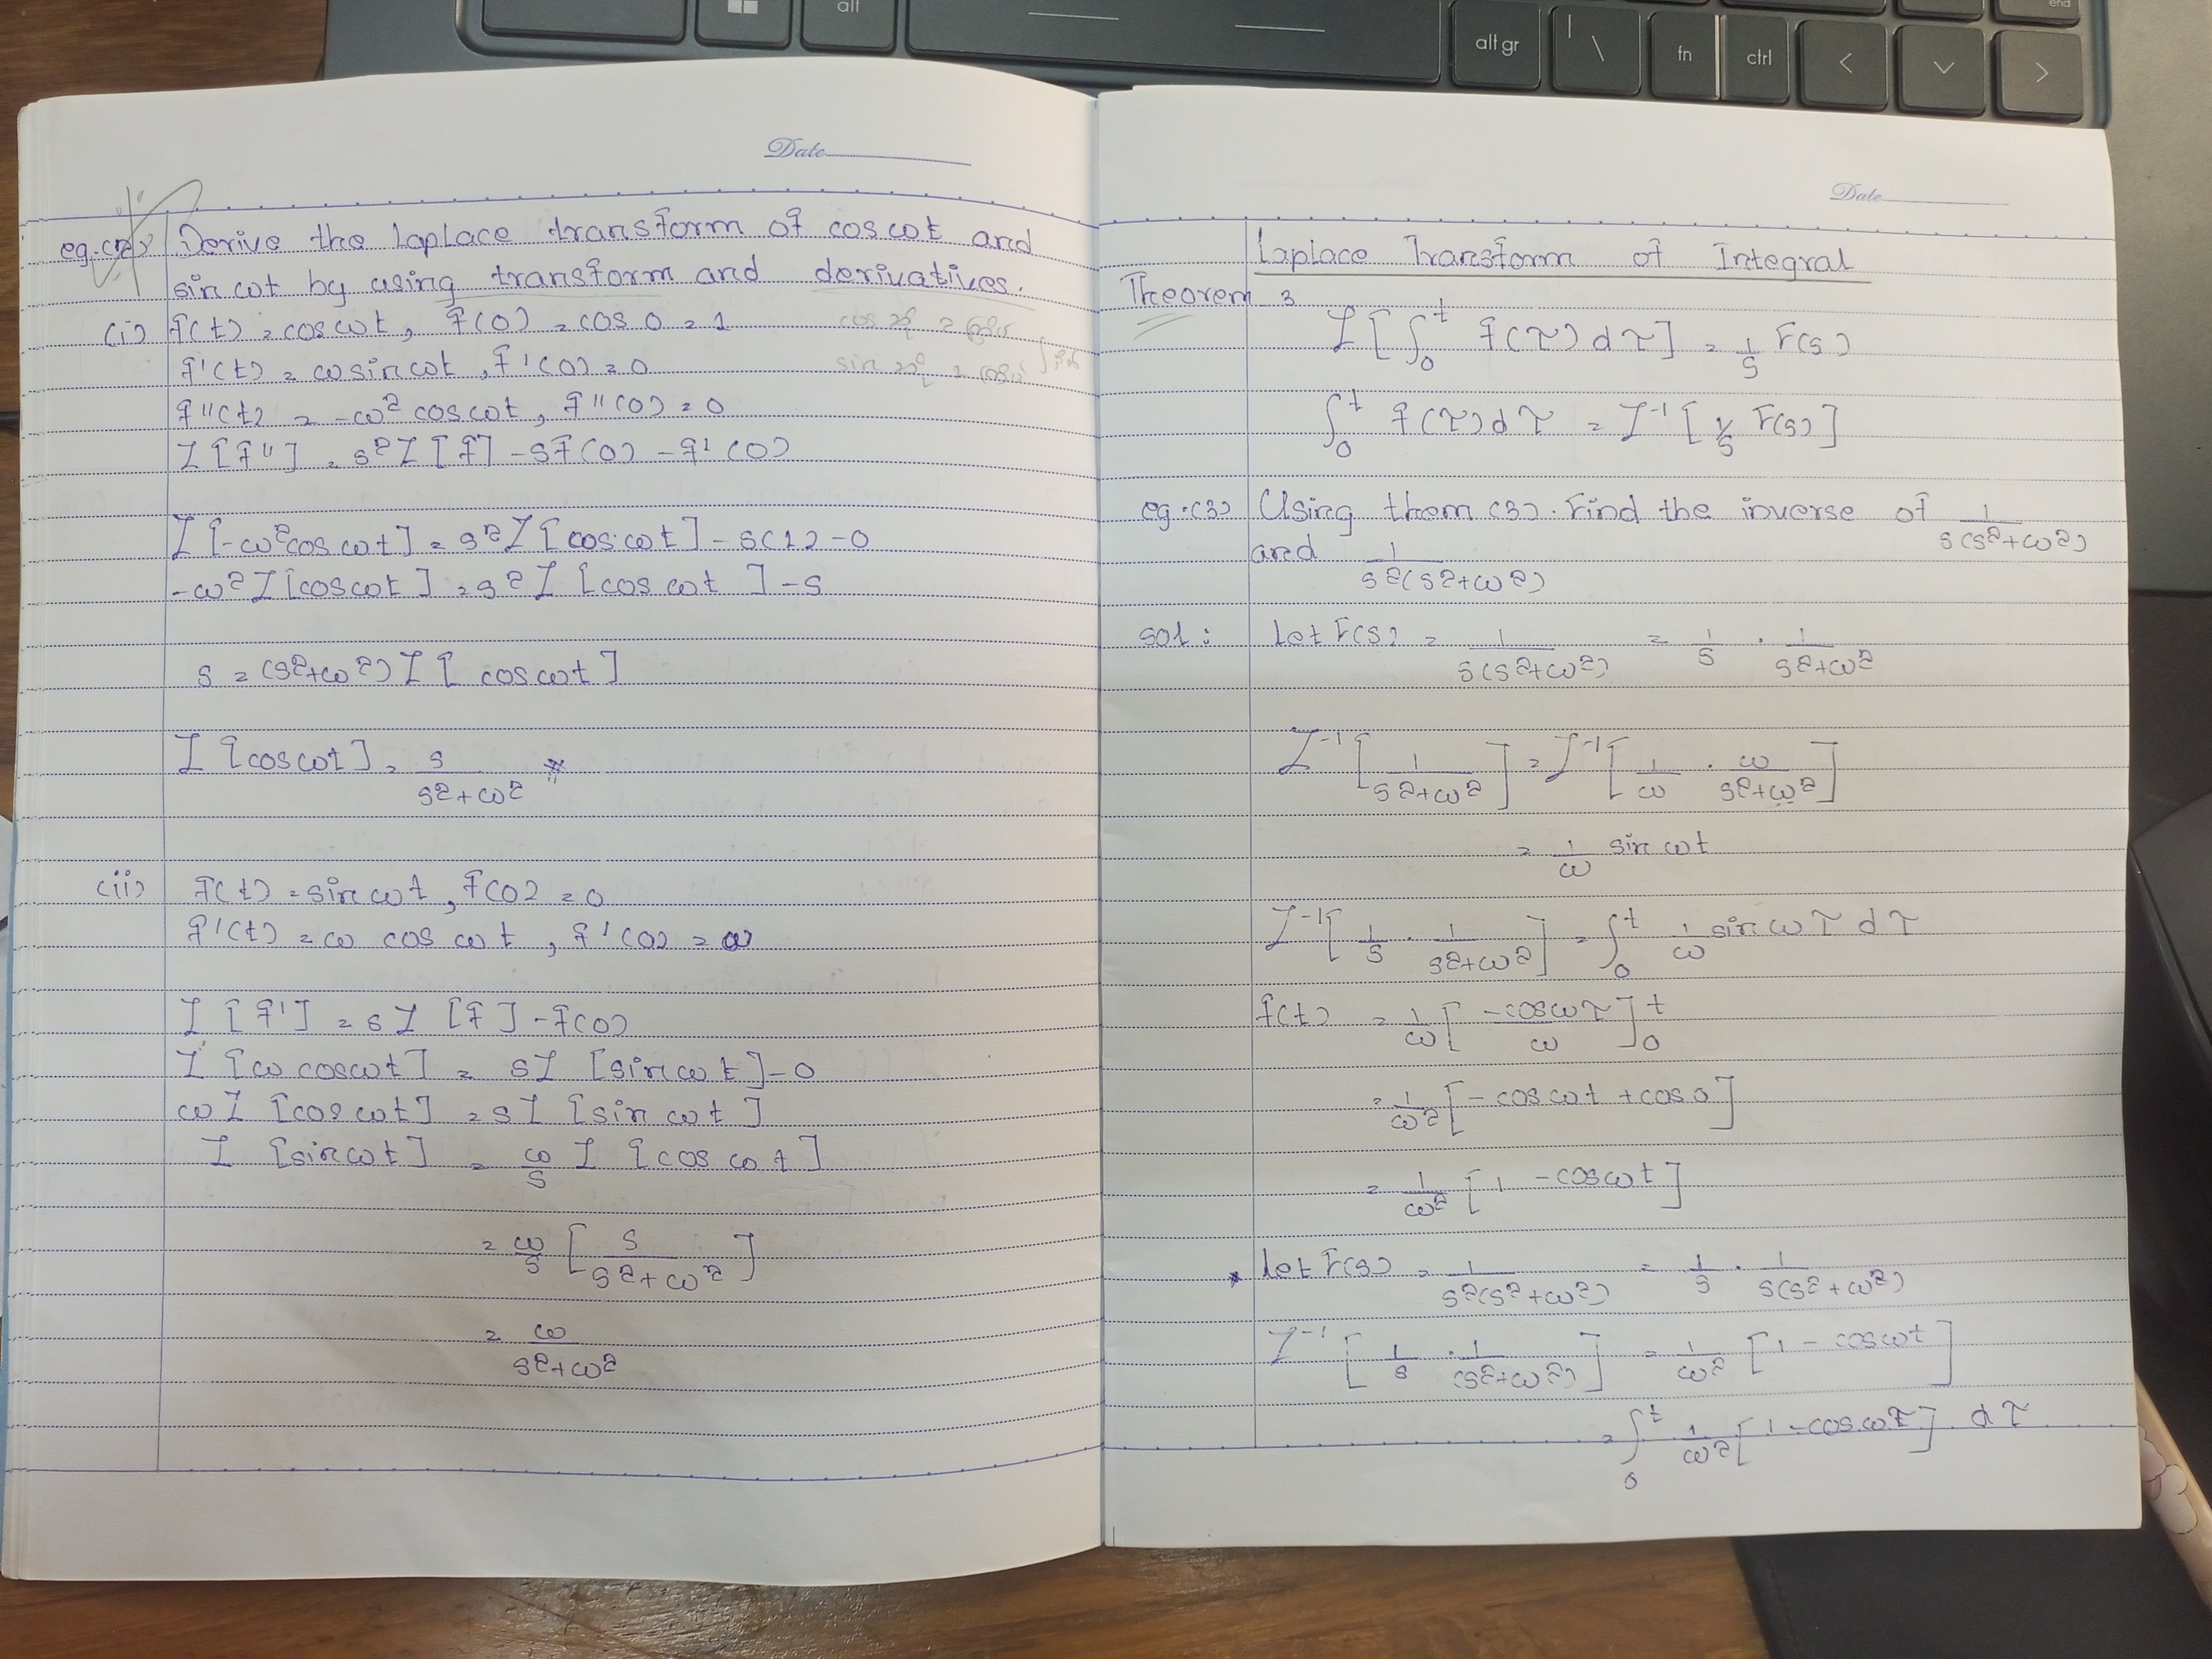 alt
alt gr
\
|
fn
ctrl
<
>
end
Date
eg.(2) Derive the Laplace transform of cos ωt and
sin ωt by using transform and derivatives.
(i) f(t) = cos ωt, f(0) = cos 0 = 1
f'(t) = ω sin ωt, f'(0) = 0
f''(t) = -ω² cos ωt, f''(0) = 0
ℒ[f''] = s²ℒ[f] - sf(0) - f'(0)
ℒ[-ω² cos ωt] = s²ℒ[cos ωt] - s(1) - 0
-ω²ℒ[cos ωt] = s²ℒ[cos ωt] - s
s = (s²+ω²)ℒ[cos ωt]
ℒ[cos ωt] = s/(s²+ω²) *
(ii) f(t) = sin ωt, f(0) = 0
f'(t) = ω cos ωt, f'(0) = ω
ℒ[f'] = sℒ[f] - f(0)
ℒ[ω cos ωt] = sℒ[sin ωt] - 0
ωℒ[cos ωt] = sℒ[sin ωt]
ℒ[sin ωt] = ω/s ℒ[cos ωt]
= ω/s [s/(s²+ω²)]
= ω/(s²+ω²)
Date
Laplace Transform of Integral
Theorem 3
ℒ[∫₀ᵗ f(τ)dτ] = 1/s F(s)
∫₀ᵗ f(τ)dτ = ℒ⁻¹[1/s F(s)]
eg.(3) Using them (3). Find the inverse of 1/(s(s²+ω²))
and 1/(s²(s²+ω²))
sol: Let F(s) = 1/(s(s²+ω²)) = 1/s · 1/(s²+ω²)
ℒ⁻¹[1/(s²+ω²)] = ℒ⁻¹[1/ω · ω/(s²+ω²)]
= 1/ω sin ωt
ℒ⁻¹[1/s · 1/(s²+ω²)] = ∫₀ᵗ 1/ω sin ωτ dτ
f(t) = 1/ω [-cos ωτ/ω]₀ᵗ
= 1/ω² [-cos ωt + cos 0]
= 1/ω² [1 - cos ωt]
* let F(s) = 1/(s²(s²+ω²)) = 1/s · 1/(s(s²+ω²))
ℒ⁻¹[1/s · 1/(s²+ω²)] = 1/ω² [1 - cos ωt]
= ∫₀ᵗ 1/ω² [1 - cos ωτ] dτ